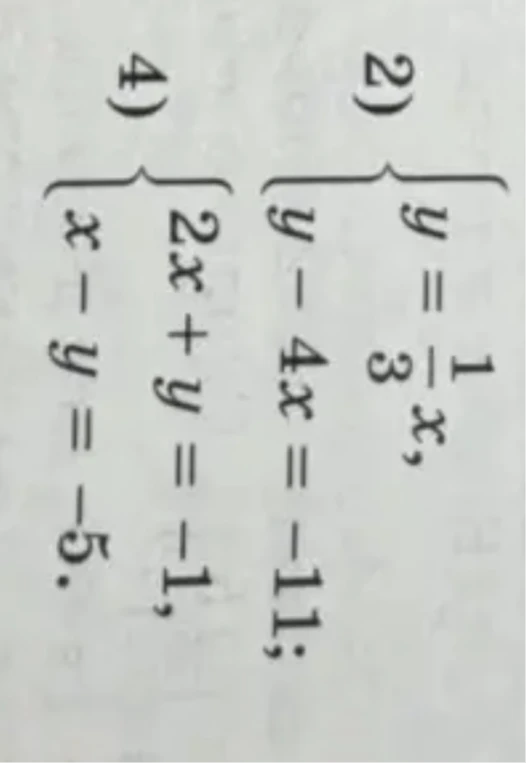 2) { y = 1/3 x,
y − 4x = −11;
4) { 2x + y = −1,
x − y = −5.